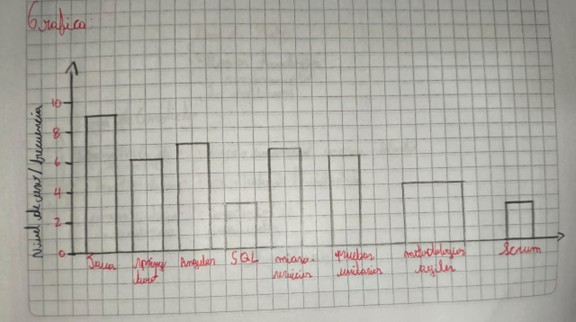 Grafica
Nivel de uso/frecuencia
10
8
6
4
2
0
Java
spring
boot
Angular
SQL
micro-
servicios
pruebas
unitarias
metodologias
agiles
Scrum